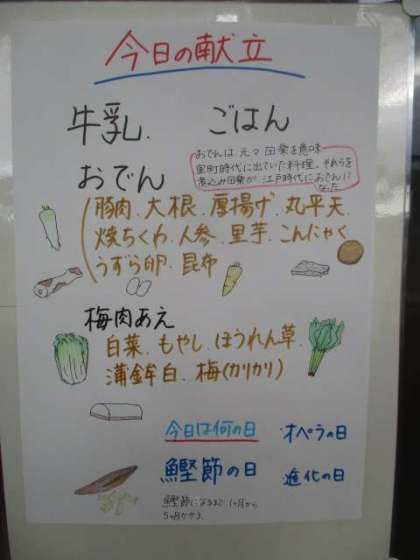 今日の献立
牛乳. ごはん
おでんは元々田楽を意味
室町時代に出ていた料理。それらを
煮込み田楽が、江戸時代におでんに
なった
おでん
豚肉.大根.厚揚げ.丸平天
焼ちくわ.人参.里芋.こんにゃく
うずら卵.昆布
梅肉あえ
白菜.もやし.ほうれん草.
蒲鉾白.梅(カリカリ)
今日は何の日 オペラの日
鰹節の日 進化の日
鰹節になるまで1ヶ月から
5ヶ月かかる